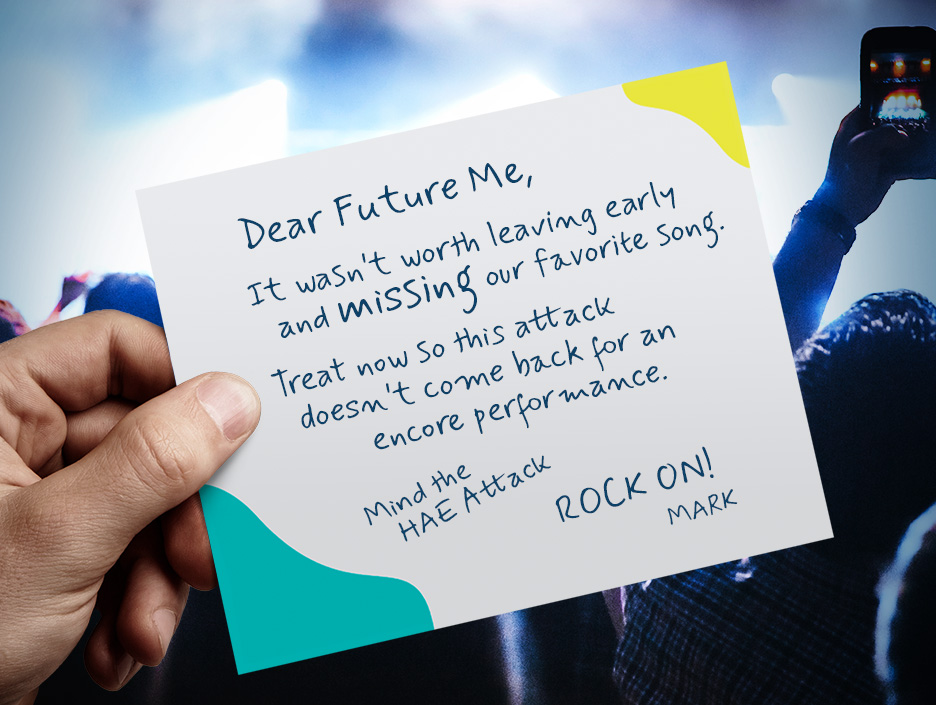 Dear Future Me,
It wasn't worth leaving early
and missing our favorite song.
Treat now so this attack
doesn't come back for an
encore performance.
Mind the
HAE Attack
ROCK ON!
MARK